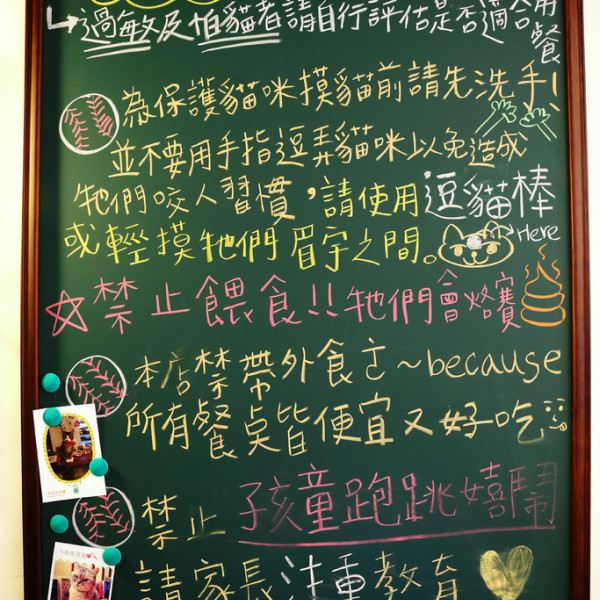 過敏及怕貓者請自行評估是否適合用餐
為保護貓咪摸貓前請先洗手!
並不要用手指逗弄貓咪以免造成
牠們咬人習慣,請使用逗貓棒
或輕摸牠們眉宇之間。
Here
禁止餵食!!牠們會烙賽
本店禁帶外食ㄛ~because
所有餐桌皆便宜又好吃
禁止孩童跑跳嬉鬧
請家長注重教育